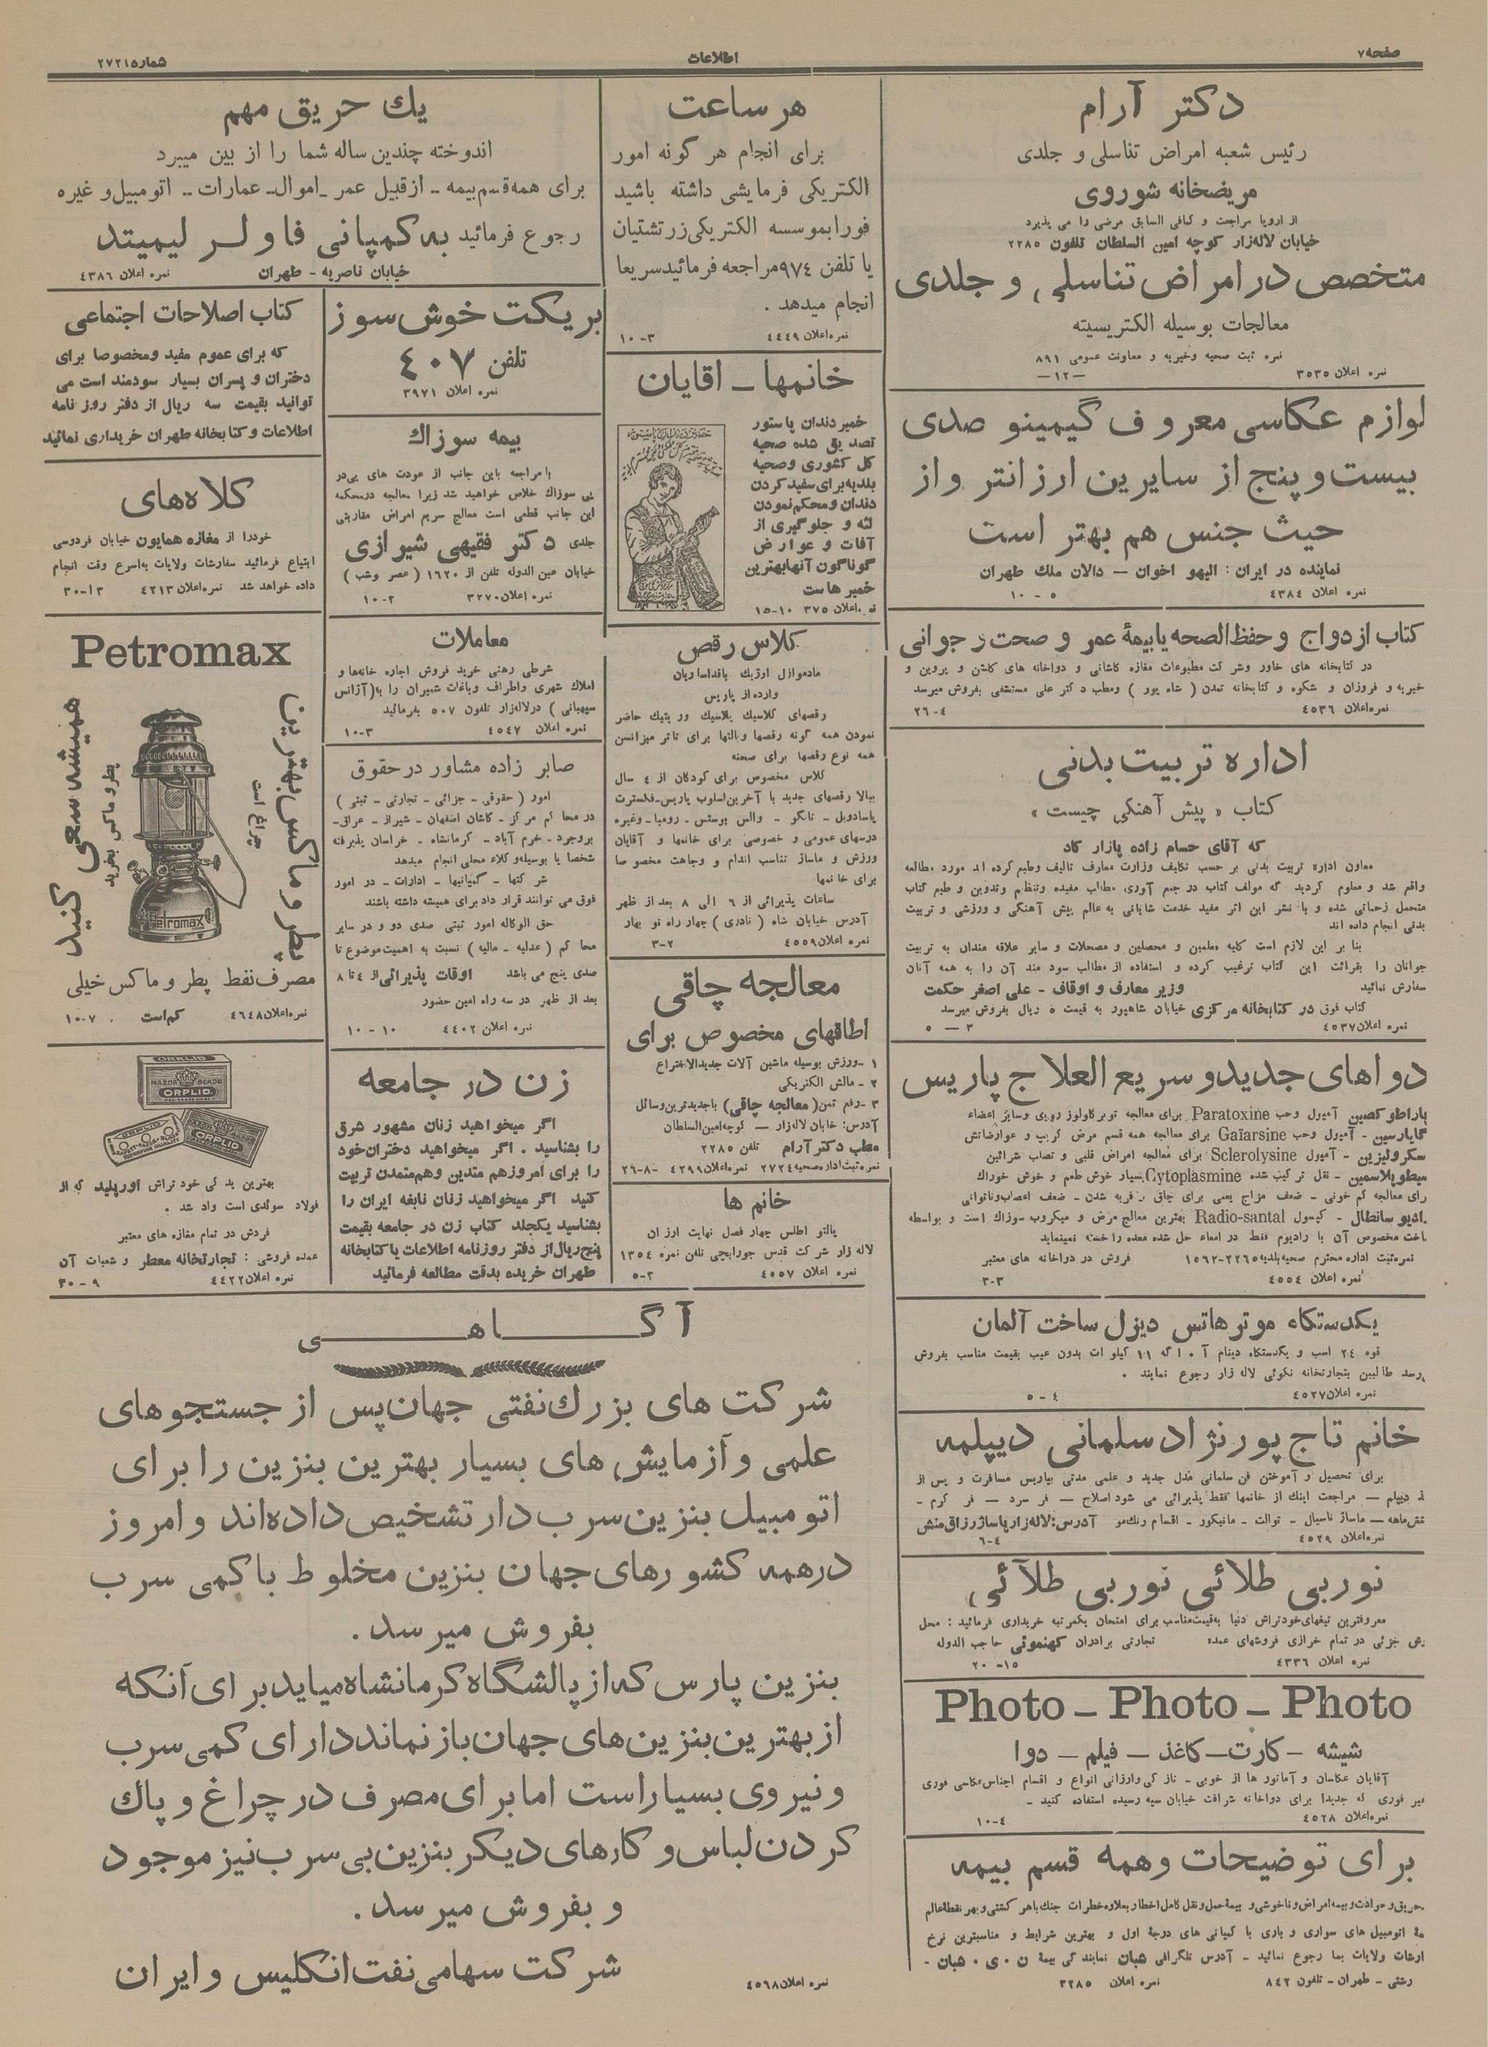 صفحه ۷
اطلاعات
شماره ۲۷۲۱۵
دکتر آرام
رئیس شعبه امراض تناسلی و جلدی
مریضخانه شوروی
از اروپا مراجعت و کمافی السابق مرضی را می پذیرد
خیابان لاله‌زار کوچه امین السلطان تلفون ۲۲۸۵
متخصص در امراض تناسلی و جلدی
معالجات بوسیله الکتریسیته
نمره ثبت صحیه و خیریه و معاونت عمومی ۸۹۱
نمره اعلان ۳۵۳۵ —۱۲—
لوازم عکاسی معروف گیمینو صدی
بیست و پنج از سایرین ارزانتر و از
حیث جنس هم بهتر است
نماینده در ایران : الیهو اخوان — دالان ملک طهران
نمره اعلان ۴۳۸۴ ۵ - ۱۰
کتاب ازدواج و حفظ الصحه یا بیمهٔ عمر و صحت و جوانی
در کتابخانه های خاور و شرکت مطبوعات مغازه کاشانی و دواخانه های کاشن و پروین و
خیریه و فروزان و شکوه و کتابخانه تمدن ( شاه پور ) ومطب دکتر علی مستشفی بفروش میرسد
نمره اعلان ۴۵۳۶ ۴-۲۶
اداره تربیت بدنی
کتاب « پیش آهنگی چیست »
که آقای حسام زاده پازارگاد
معاون اداره تربیت بدنی بر حسب تکلیف وزارت معارف تالیف وطبع کرده اند مورد مطالعه
واقع شد و معلوم گردید که مولف کتاب در جمع آوری مطالب مفیده وتنظیم وتدوین و طبع کتاب
متحمل زحماتی شده و با نشر این اثر مفید خدمت شایانی به عالم پیش آهنگی و ورزشی و تربیت
بدنی انجام داده اند
بنا بر این لازم است کلیه معلمین و محصلین و مصحلات و سایر علاقه مندان به تربیت
جوانان را بقرائت این کتاب ترغیب کرده و استفاده از مطالب سود مند آن را به همه آنان
سفارش نمائید وزیر معارف و اوقاف - علی اصغر حکمت
کتاب فوق در کتابخانه مرکزی خیابان شاهپور به قیمت ۵ ریال بفروش میرسد
نمره اعلان ۴۵۳۷ ۳ — ۵
دواهای جدید و سریع العلاج پاریس
پاراطوکسین آمپول وحب Paratoxine برای معالجه توبرکولوز ریوی وسایر اعضاء
گایارسین - آمپول وحب Gaïarsine برای معالجه همه قسم مرض گریپ و عوارضاتش
سکرولیزین - آمپول Sclerolysine برای معالجه امراض قلبی و تصلب شرائین
سیطوپلاسمین - نقل ترکیب شده Cytoplasmine بسیار خوش طعم و خوش خوراک
رای معالجه کم خونی - ضعف مزاج یعنی برای چاق و فربه شدن - ضعف اعصاب وناتوانی
ادیو سانطال - کپسول Radio-santal بهترین معالج مرض و میکروب سوزاک است و بواسطه
اخت مخصوص آن با رادیوم فقط در امعاء حل شده معده را خسته نمینماید
نمره ثبت اداره محترم صحیه بلدیه ۲۲۶۵-۱۵۶۲ فروش در دواخانه های معتبر
نمره اعلان ۴۵۵۴ ۳-۳
یکدستگاه موتر هاتس دیزل ساخت آلمان
قوه ۲۴ اسب و یکدستگاه دینام آ . ا . گ ۱۱ کیلو ات بدون عیب بقیمت مناسب بفروش
میرسد طالبین بتجارتخانه نکوئی لاله زار رجوع نمایند .
نمره اعلان ۴۵۲۷ ۴ - ۵
خانم تاج پور نژاد سلمانی دیپلمه
برای تحصیل و آموختن فن سلمانی مدل جدید و علمی مدتی بپاریس مسافرت و پس از
ذ دیپلم — مراجعت اینک از خانمها فقط پذیرائی می شود اصلاح — فر سرد — فر گرم -
شش‌ماهه — ماساژ فاسیال - توالت - مانیکور - اقسام رنگ مو آدرس: لاله زار پاساژ رزاق منش
نمره اعلان ۴۵۲۹ ۴-۶
نوربی طلائی نوربی طلآئی
معروفترین تیغهای خودتراش دنیا به قیمت مناسب برای امتحان یکمرتبه خریداری فرمائید : محل
وش جزئی در تمام خرازی فروشهای عمده تجارتی برادران کهنموئی حاجب الدوله
نمره اعلان ۴۳۳۶ ۱۵-۲۰
Photo - Photo - Photo
شیشه - کارت - کاغذ - فیلم - دوا
آقایان عکاسان و آماتور ها از خوبی - نازکی وارزانی انواع و اقسام اجناس عکاسی فوری
غیر فوری که جدیدا برای دواخانه شرافت خیابان سپه رسیده استفاده کنید -
نمره اعلان ۴۵۲۸ ۴-۱۰
برای توضیحات و همه قسم بیمه
حریق و حوادث و بیمه امراض و ناخوشی و بیمهٔ حمل و نقل کامل اخطار بعلاوه خطرات جنگ باهر کشتی و بهر نقطهٔ عالم
مهٔ اتومبیل های سواری و باری با کمپانی های درجهٔ اول و بهترین شرایط و مناسبترین نرخ
ارشات ولایات بما رجوع نمائید - آدرس تلگرافی شبان نمایندگی بیمهٔ ن . ی . شبان -
رشتی - طهران - تلفون ۸۴۲ نمره اعلان ۳۲۸۵
هر ساعت
برای انجام هر گونه امور
الکتریکی فرمایشی داشته باشید
فورا بموسسه الکتریکی زرتشتیان
یا تلفن ۹۷۴ مراجعه فرمائید سریعا
انجام میدهد .
نمره اعلان ۴۴۴۹ ۳-۱۰
خانمها - اقایان
خمیر دندان پاستور
تصدیق شده صحیه
کل کشوری و صحیه
بلدیه برای سفید کردن
دندان و محکم نمودن
لثه و جلوگیری از
آفات و عوارض
گوناگون آنها بهترین
خمیر هاست
نمره اعلان ۳۷۵ ۱۰-۱۵
کلاس رقص
مادموازل اوژنیک باغداساریان
وارده از پاریس
رقصهای کلاسیک پلاسیک وریتمیک حاضر
نمودن همه گونه رقصها وبالتها برای تئاتر میزانسن
همه نوع رقصها برای صحنه
کلاس مخصوص برای کودکان از ۴ سال
ببالا رقصهای جدید با آخرین اسلوب پاریس-فکسترت
پاسادوبل - تانگو - والس بوستن - رومبا - وغیره
درسهای عمومی و خصوصی برای خانمها و آقایان
ورزش و ماساژ تناسب اندام و وجاهت مخصوصا
برای خانمها
ساعات پذیرائی از ۶ الی ۸ بعد از ظهر
آدرس خیابان شاه ( نادری ) چهار راه نو بهار
نمره اعلان ۴۵۵۹ ۲-۳
معالجه چاقی
اطاقهای مخصوص برای
۱ - ورزش بوسیله ماشین آلات جدیدالاختراع
۲ - مالش الکتریکی
۳ - رفع ثمن ( معالجه چاقی ) با جدیدترین وسائل
آدرس: خیابان لاله‌زار — کوچه امین السلطان
مطب دکتر آرام تلفن ۲۲۸۵
نمره ثبت اداره صحیه ۲۷۲۴ نمره اعلان ۴۲۹۹ ۸-۲۶
خانم ها
پالتو اطلس چهار فصل نهایت ارزان
لاله زار شرکت قدس جورابچی تلفن نمره ۱۳۵۴
نمره اعلان ۴۵۵۷ ۲-۵
یک حریق مهم
اندوخته چندین ساله شما را از بین میبرد
برای همه قسم بیمه - از قبیل عمر - اموال - عمارات - اتومبیل و غیره
رجوع فرمائید به کمپانی فاولر لیمیتد
خیابان ناصریه - طهران نمره اعلان ۴۳۸۶
بریکت خوش سوز
تلفن ۴۰۷
نمره اعلان ۳۹۷۱
بیمه سوزاک
با مراجعه باین جانب از عودت های پی در
پی سوزاک خلاص خواهید شد زیرا معالجه در محکمه
این جانب قطعی است معالج سریع امراض مقاربتی
جلدی دکتر فقیهی شیرازی
خیابان عین الدوله تلفن از ۱۶۲۰ ( عصر وشب )
نمره اعلان ۳۲۷۰ ۲-۱۰
معاملات
شرطی رهنی خرید فروش اجاره خانه‌ها و
املاک شهری واطراف وباغات شمیران را به ( آژانس
سپهبانی ) در لاله‌زار تلفون ۵۰۷ بفرمائید
نمره اعلان ۴۵۴۷ ۳-۱۰
صابر زاده مشاور در حقوق
امور ( حقوقی - جزائی - تجارتی - ثبتی )
در محاکم مرکز - کاشان اصفهان - شیراز - عراق-
بروجرد - خرم آباد - کرمانشاه - خراسان پذیرفته
شخصا یا بوسیله وکلاء محلی انجام میدهد
شرکتها - کمپانیها - ادارات - در امور
فوق می توانند قرار داد برای همیشه داشته باشند
حق الوکاله امور ثبتی صدی دو و در سایر
محاکم ( عدلیه - مالیه ) نسبت به اهمیت موضوع تا
صدی پنج می باشد اوقات پذیرائی از ۴ تا ۸
بعد از ظهر در سه راه امین حضور
نمره اعلان ۴۴۰۲ ۱۰ - ۱۰
زن در جامعه
اگر میخواهید زنان مشهور شرق
را بشناسید . اگر میخواهید دختران خود
را برای امروز هم متدین وهم متمدن تربیت
کنید اگر میخواهید زنان نابغه ایران را
بشناسید یکجلد کتاب زن در جامعه بقیمت
پنج ریال از دفتر روزنامه اطلاعات یا کتابخانه
طهران خریده بدقت مطالعه فرمائید
کتاب اصلاحات اجتماعی
که برای عموم مفید ومخصوصا برای
دختران و پسران بسیار سودمند است می
توانید بقیمت سه ریال از دفتر روز نامه
اطلاعات و کتابخانه طهران خریداری نمائید
کلاه‌های
خودرا از مغازه همایون خیابان فردوسی
ابتیاع فرمائید سفارشات ولایات به‌اسرع وقت انجام
داده خواهد شد نمره اعلان ۴۲۱۳ ۱۳-۳۰
Petromax
پطروماکس بهترین
چراغ است
پطروماکس بخرید
همیشه سعی کنید
Petromax
مصرف نفط پطروماکس خیلی
کم است نمره اعلان ۴۶۴۸ ۷-۱۰
ORPLID
RAZOR BLADE
ORPLID
ORPLID
ORPLID
بهترین یدکی خود تراش اورپلید که از
فولاد سوئدی است واد شد .
فردش در تمام مغازه های معتبر
عمده فروشی : تجارتخانه معطر و شعبات آن
نمره اعلان ۴۴۲۲ ۹ - ۳۰
آگاهی
شرکت های بزرک نفتی جهان پس از جستجوهای
علمی و آزمایش های بسیار بهترین بنزین را برای
اتومبیل بنزین سرب دار تشخیص داده‌اند و امروز
در همه کشورهای جهان بنزین مخلوط با کمی سرب
بفروش میرسد .
بنزین پارس که از پالشگاه کرمانشاه میاید برای آنکه
از بهترین بنزین های جهان باز نماند دارای کمی سرب
و نیروی بسیار است اما برای مصرف در چراغ و پاک
کردن لباس و کارهای دیگر بنزین بی سرب نیز موجود
و بفروش میرسد .
شرکت سهامی نفت انگلیس و ایران
نمره اعلان ۴۵۶۸